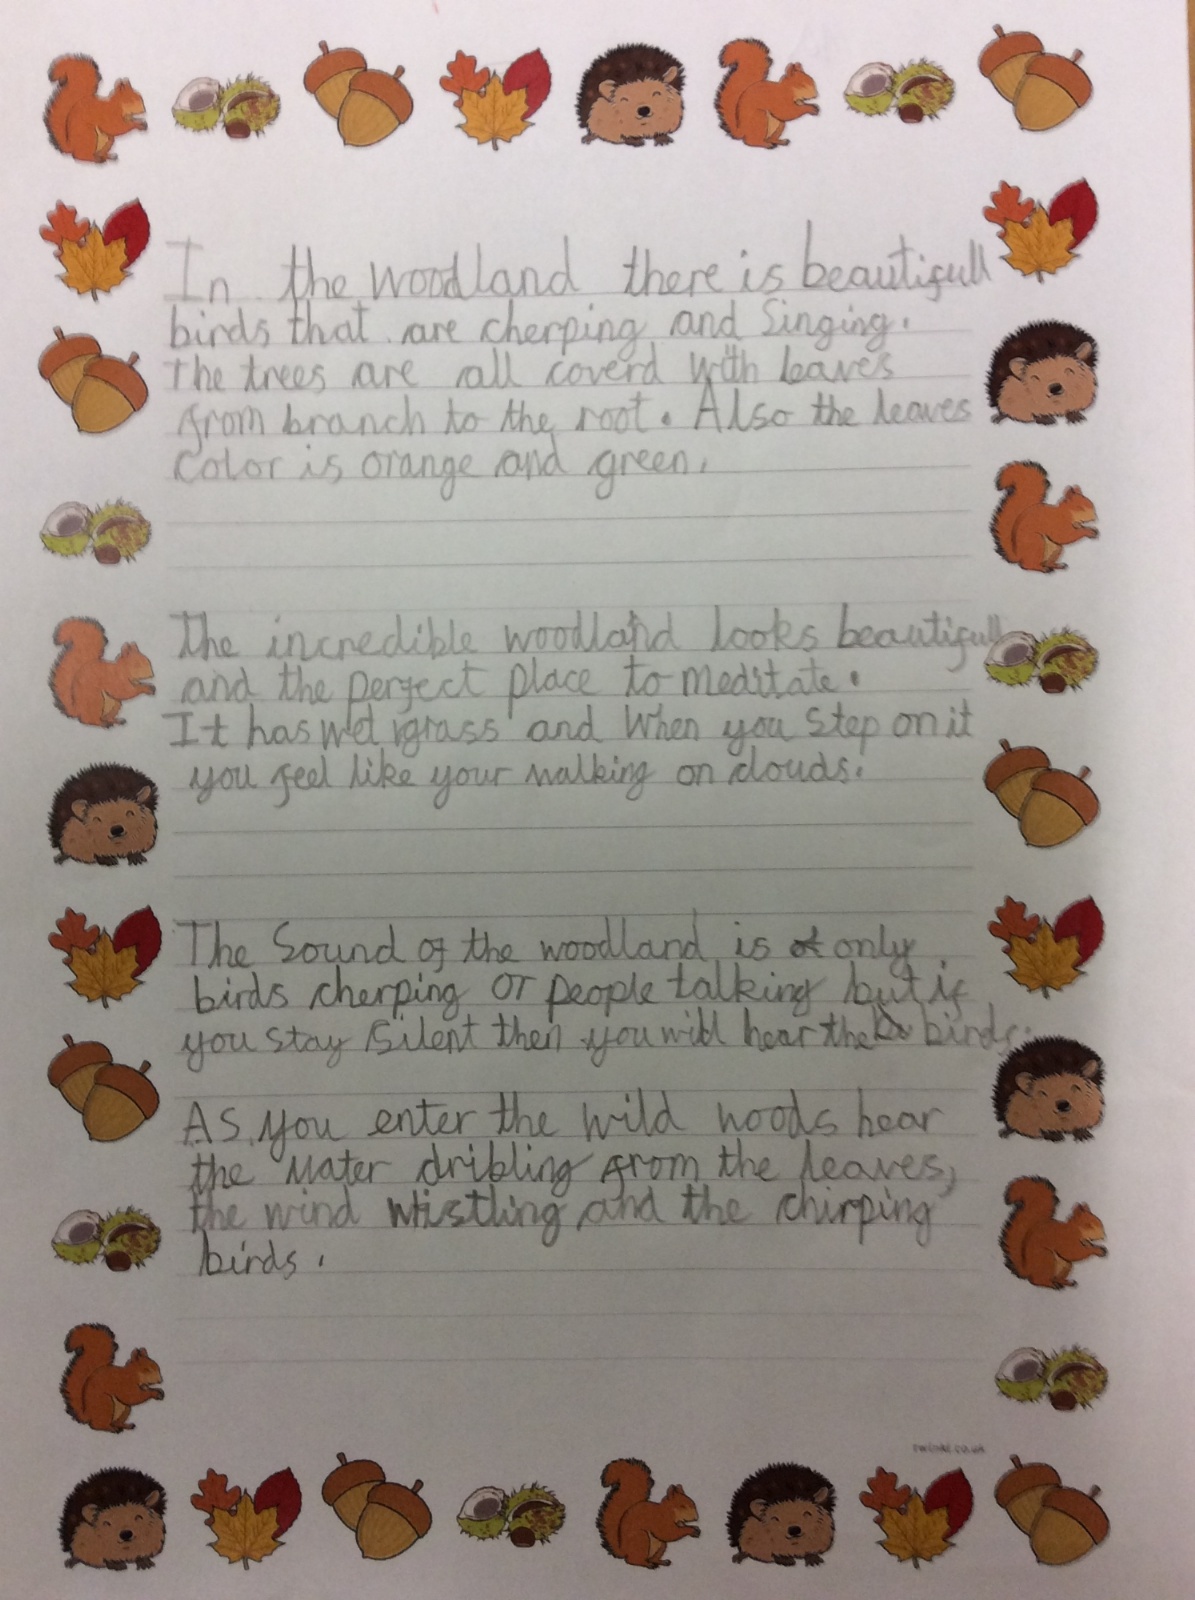 In the woodland there is beautifull
birds that are cherping and Singing.
The trees are all coverd with leaves
from branch to the root. Also the leaves
Color is orange and green.
The incredible woodland looks beautifull
and the perfect place to meditate.
It has wet grass and When you Step on it
you feel like your walking on clouds.
The Sound of the woodland is only
birds cherping or people talking but if
you stay silent then you will hear the birds.
As you enter the wild woods hear
the water dribling from the leaves,
the wind whistling and the chirping
birds.
twinkl.co.uk